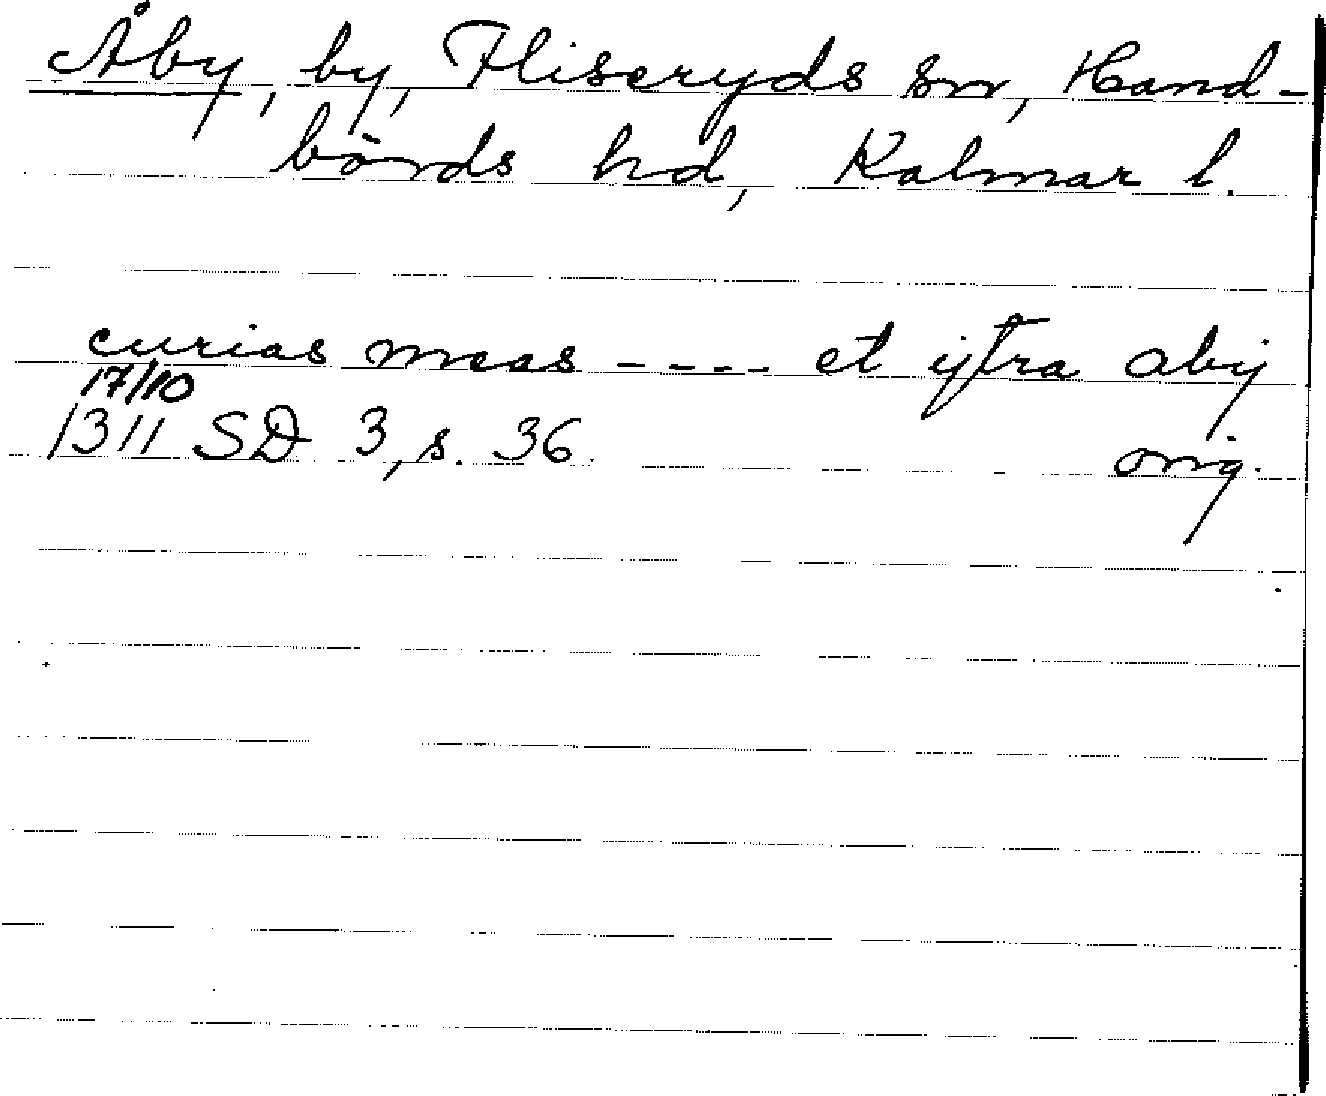 Åby, by, Fliseryds sn, Hand-
börds hd, Kalmar l.
curias meas ---- et ijtra abij
17/10
1311 SD 3, s. 36. orig.